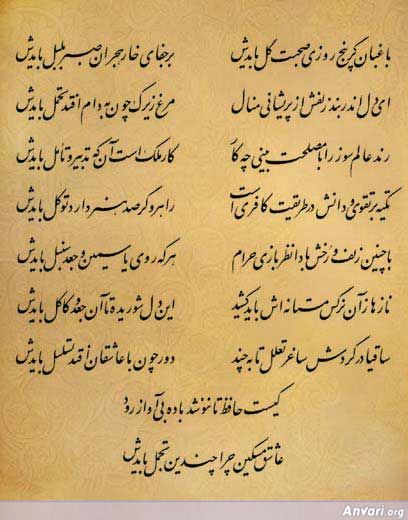 باغبان گر پنج روزی صحبت گل بایدش    بر جفای خار هجران صبر بلبل بایدش
ای دل اندر بند زلفش از پریشانی منال    مرغ زیرک چون به دام افتد تحمل بایدش
رند عالم سوز را با مصلحت بینی چه کار    کار ملک است آن که تدبیر و تامل بایدش
تکیه بر تقوی و دانش در طریقت کافری است    راهرو گر صد هنر دارد توکل بایدش
با چنین زلف و رخش بادا نظربازی حرام    هر که روی یاسمین و جعد سنبل بایدش
نازها زان نرگس مستانه اش باید کشید    این دل شوریده تا آن جعد و کاکل بایدش
ساقیا در گردش ساغر تعلل تا به چند    دور چون با عاشقان افتد تسلسل بایدش
کیست حافظ تا ننوشد باده بی آواز رود
عاشق مسکین چرا چندین تجمل بایدش
Anvari.org